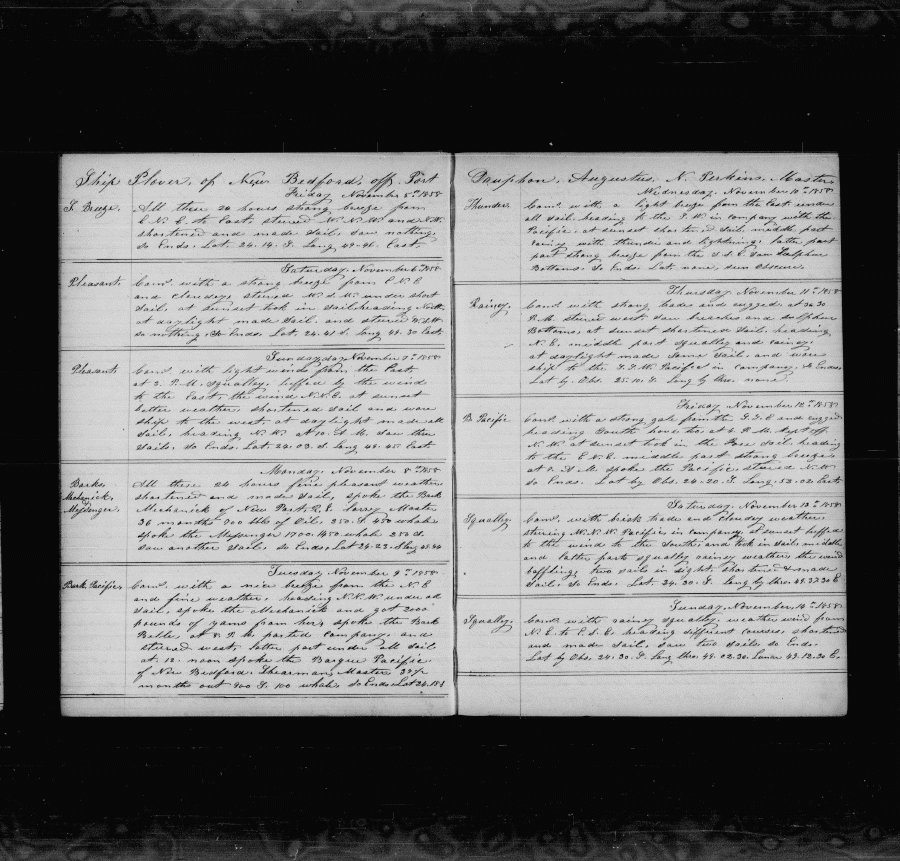 Ship Plover, of New Bedford, off Port
Friday November 5th 1858
S. Breeze. All these 24 hours strong breeze from
E N E to East, stered W. N. W. and N.W.
shortened and made sail, saw nothing
So Ends. Lat. 24.14. S. Long 49.41. East.
Saturday November 6th 1858
Pleasant. Com. with a strong breeze from E N E
and cloudy, stered W. S. W. under short
sail, at sunset took in sail heading North
at daylight made sail and stered W.S.W.
saw nothing, So Ends. Lat. 24.41 S. Long 48.30 East.
Sunday November 7th 1858
Pleasant. Com. with light winds from the East
at 2. P. M. squally, luffed by the wind
to the East, the wind N.N.E. at sunset
better weather, shortened sail and wore
ship to the west, at daylight made all
sail, heading N. W. at 10. A. M. saw three
sails, So Ends. Lat. 24.03. S. Long 48.45 East
Monday, November 8th 1858
Barks, Mechanick, Messenger. All these 24 hours fine pleasant weather
shortened and made sail, spoke the Bark
Mechanick of New Port. R.I. Master
36 months 700 bbls of Oil, 250. S. 450 whale
spoke the Messenger 1700. 1450 whale 250 S.
saw another sail, So Ends, Lat 24-23. S Long
Tuesday November 9th 1858
Bark Pacific. Com. with a nice breeze from the N. E
and fine weather, heading N.N.W. under all
sail, spoke the Mechanick and got 2000
pounds of yams from her, spoke the Bark
at 8. P. M. parted company, and
stered west, latter part under all sail
at 12. noon spoke the Barque Pacific
of New Bedford, Shearman, Master
months out 900 S. 100 whale, So Ends Lat 24.18 S
Dauphon, Augustus, N. Perkins, Master
Wednesday, November 10th 1858
Thunder. Com. with a light breeze from the East, under
all sail, heading to the S. W. in company with the
Pacific, at sunset shortened sail, middle part
rainy with thunder and lightning, latter part
part strong breeze from the S S E Saw Sulpher
Bottoms. So Ends. Lat none, sun obscure.
Thursday November 11th 1858
Rainey. Com. with strong trades and rugged, at 3.30
P. M. stered west, saw breaches and sulpher
Bottoms, at sunset shortened sail, heading
N. E. middle part squally and rainey,
at daylight made some sail, and wore
ship to the S. S. W. Pacific in company, So Ends
Lat by Obs. 25.10. S. Long by Chro. none.
Friday November 12th 1858
B Pacific Com. with a strong gale from the S. S. E and rugged
heading South hove too, at 4. P. M. kept off
N. W. at sunset took in the Fore sail heading
to the E. N. E. middle part strong breeze
at A M spoke the Pacific, stered N. W.
So Ends. Lat by Obs. 24.20. S. Long. 50.02 East
Saturday, November 13th 1858
Squally. Com. with brisk trade and cloudy weather
stering W. N. W. Pacific in company, at sunset luffed
to the wind to the South, and took in sail, middle
and latter parts squally rainey weather the wind
baffling, two sails in sight, shortened & made
sail, So Ends. Lat. 24.30. S. Long by Chro. 49.37.30 E
Sunday, November, 14th 1858
Squally. Com. with rainey squally weather wind from
N. E. to E. S. E. heading different courses, shortened
and made sail, saw two sails, So Ends.
Lat by Obs. 24.30. S. Long Chro. 49.02.30. Lunar 49.12.30 E.